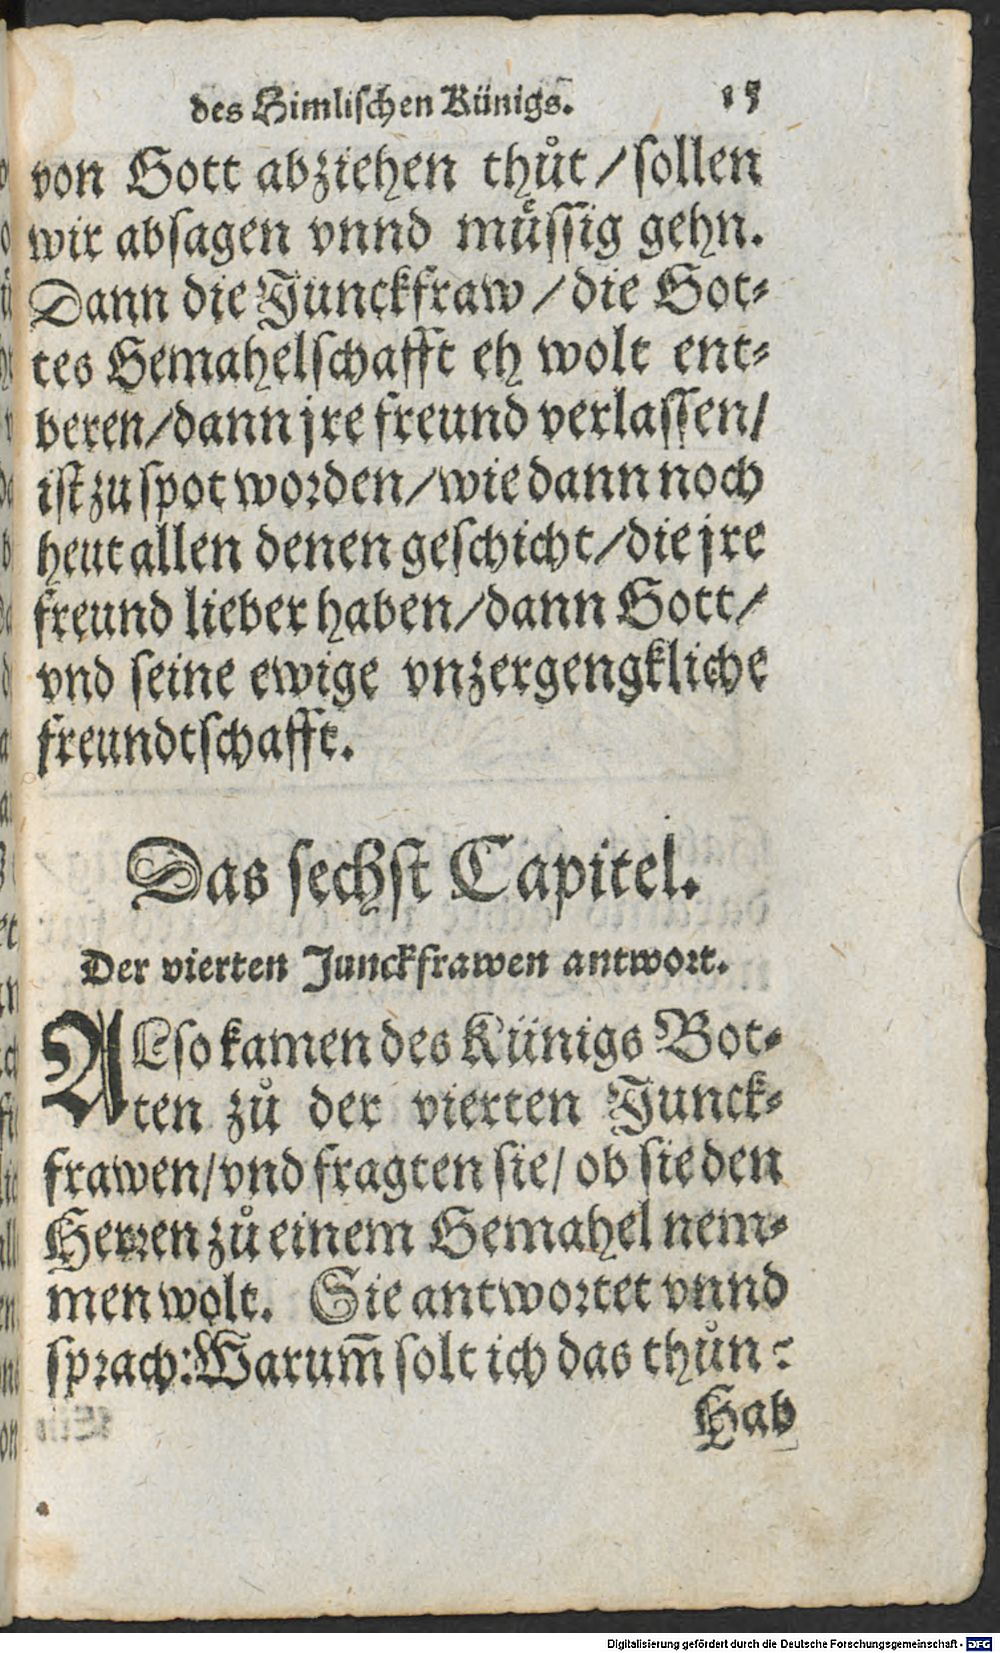 des Himlischen Künigs. 15
von Gott abziehen thůt / sollen
wir absagen vnnd müssig gehn.
Dann die Junckfraw / die Got⸗
tes Gemahelschafft eh wolt ent⸗
beren / dann jre freund verlassen /
ist zu spot worden / wie dann noch
heut allen denen geschicht / die jre
freund lieber haben / dann Gott /
vnd seine ewige vnzergengkliche
freundtschafft.
Das sechst Capitel.
Der vierten Junckfrawen antwort.
ALso kamen des Künigs Bot⸗
ten zů der vierten Junck⸗
frawen / vnd fragten sie / ob sie den
Herren zů einem Gemahel nem⸗
men wolt. Sie antwortet vnnd
sprach: Warum̃ solt ich das thůn?
Hab
Digitalisierung gefördert durch die Deutsche Forschungsgemeinschaft - DFG